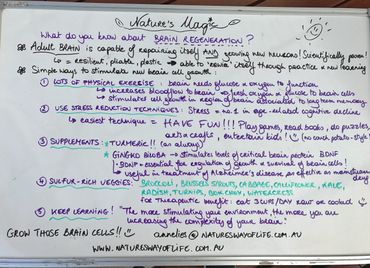 "Nature's Magic"
What do you know about BRAIN REGENERATION?
Adult BRAIN is capable of repairing itself AND growing new neurons! Scientifically proven
↳ = resilient, pliable, plastic → able to 'rewire' itself through practice & new learning
Simple ways to stimulate new brain cell growth:
① LOTS OF PHYSICAL EXERCISE: brain needs glucose & oxygen to function
↳ increases bloodflow to brain → feeds oxygen & glucose to brain cells
↳ stimulates cell growth in region of brain associated to long term memory
② USE STRESS REDUCTION TECHNIQUES: Stress = no. 1 in age-related cognitive decline
↳ easiest technique = HAVE FUN!!! Play games, read books, do puzzles,
arts & crafts, entertain kids! (no couch-potato-style!)
③ SUPPLEMENTS: * TURMERIC!! (as always)
* GINGKO BILOBA → stimulates levels of critical brain protein BDNF
- BDNF = essential for regulation of growth & survival of brain cells!
↳ useful in treatment of Alzheimer's disease, as effective as mainstream drug
④ SULFUR-RICH VEGGIES: BROCCOLI, BRUSSELS SPROUTS, CABBAGE, CAULIFLOWER, KALE,
RADISH, TURNIPS, BOK CHOY, WATERCRESS
For therapeutic benefit: eat 3 cups/day raw or cooked
⑤ KEEP LEARNING! "The more stimulating your environment, the more you are
increasing the complexity of your brain."
GROW THOSE BRAIN CELLS!! annelies@NATURESWAYOFLIFE.COM.AU
WWW.NATURESWAYOFLIFE.COM.AU